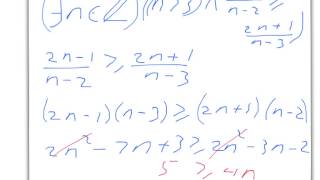 (∃n∈ℤ)(n>3) ∧ (2n-1/n-2 ≥ 2n+1/n-3)
2n-1/n-2 ≥ 2n+1/n-3
(2n-1)(n-3) ≥ (2n+1)(n-2)
2n² - 7n+3 ≥ 2n² - 3n-2
5 ≥ 4n